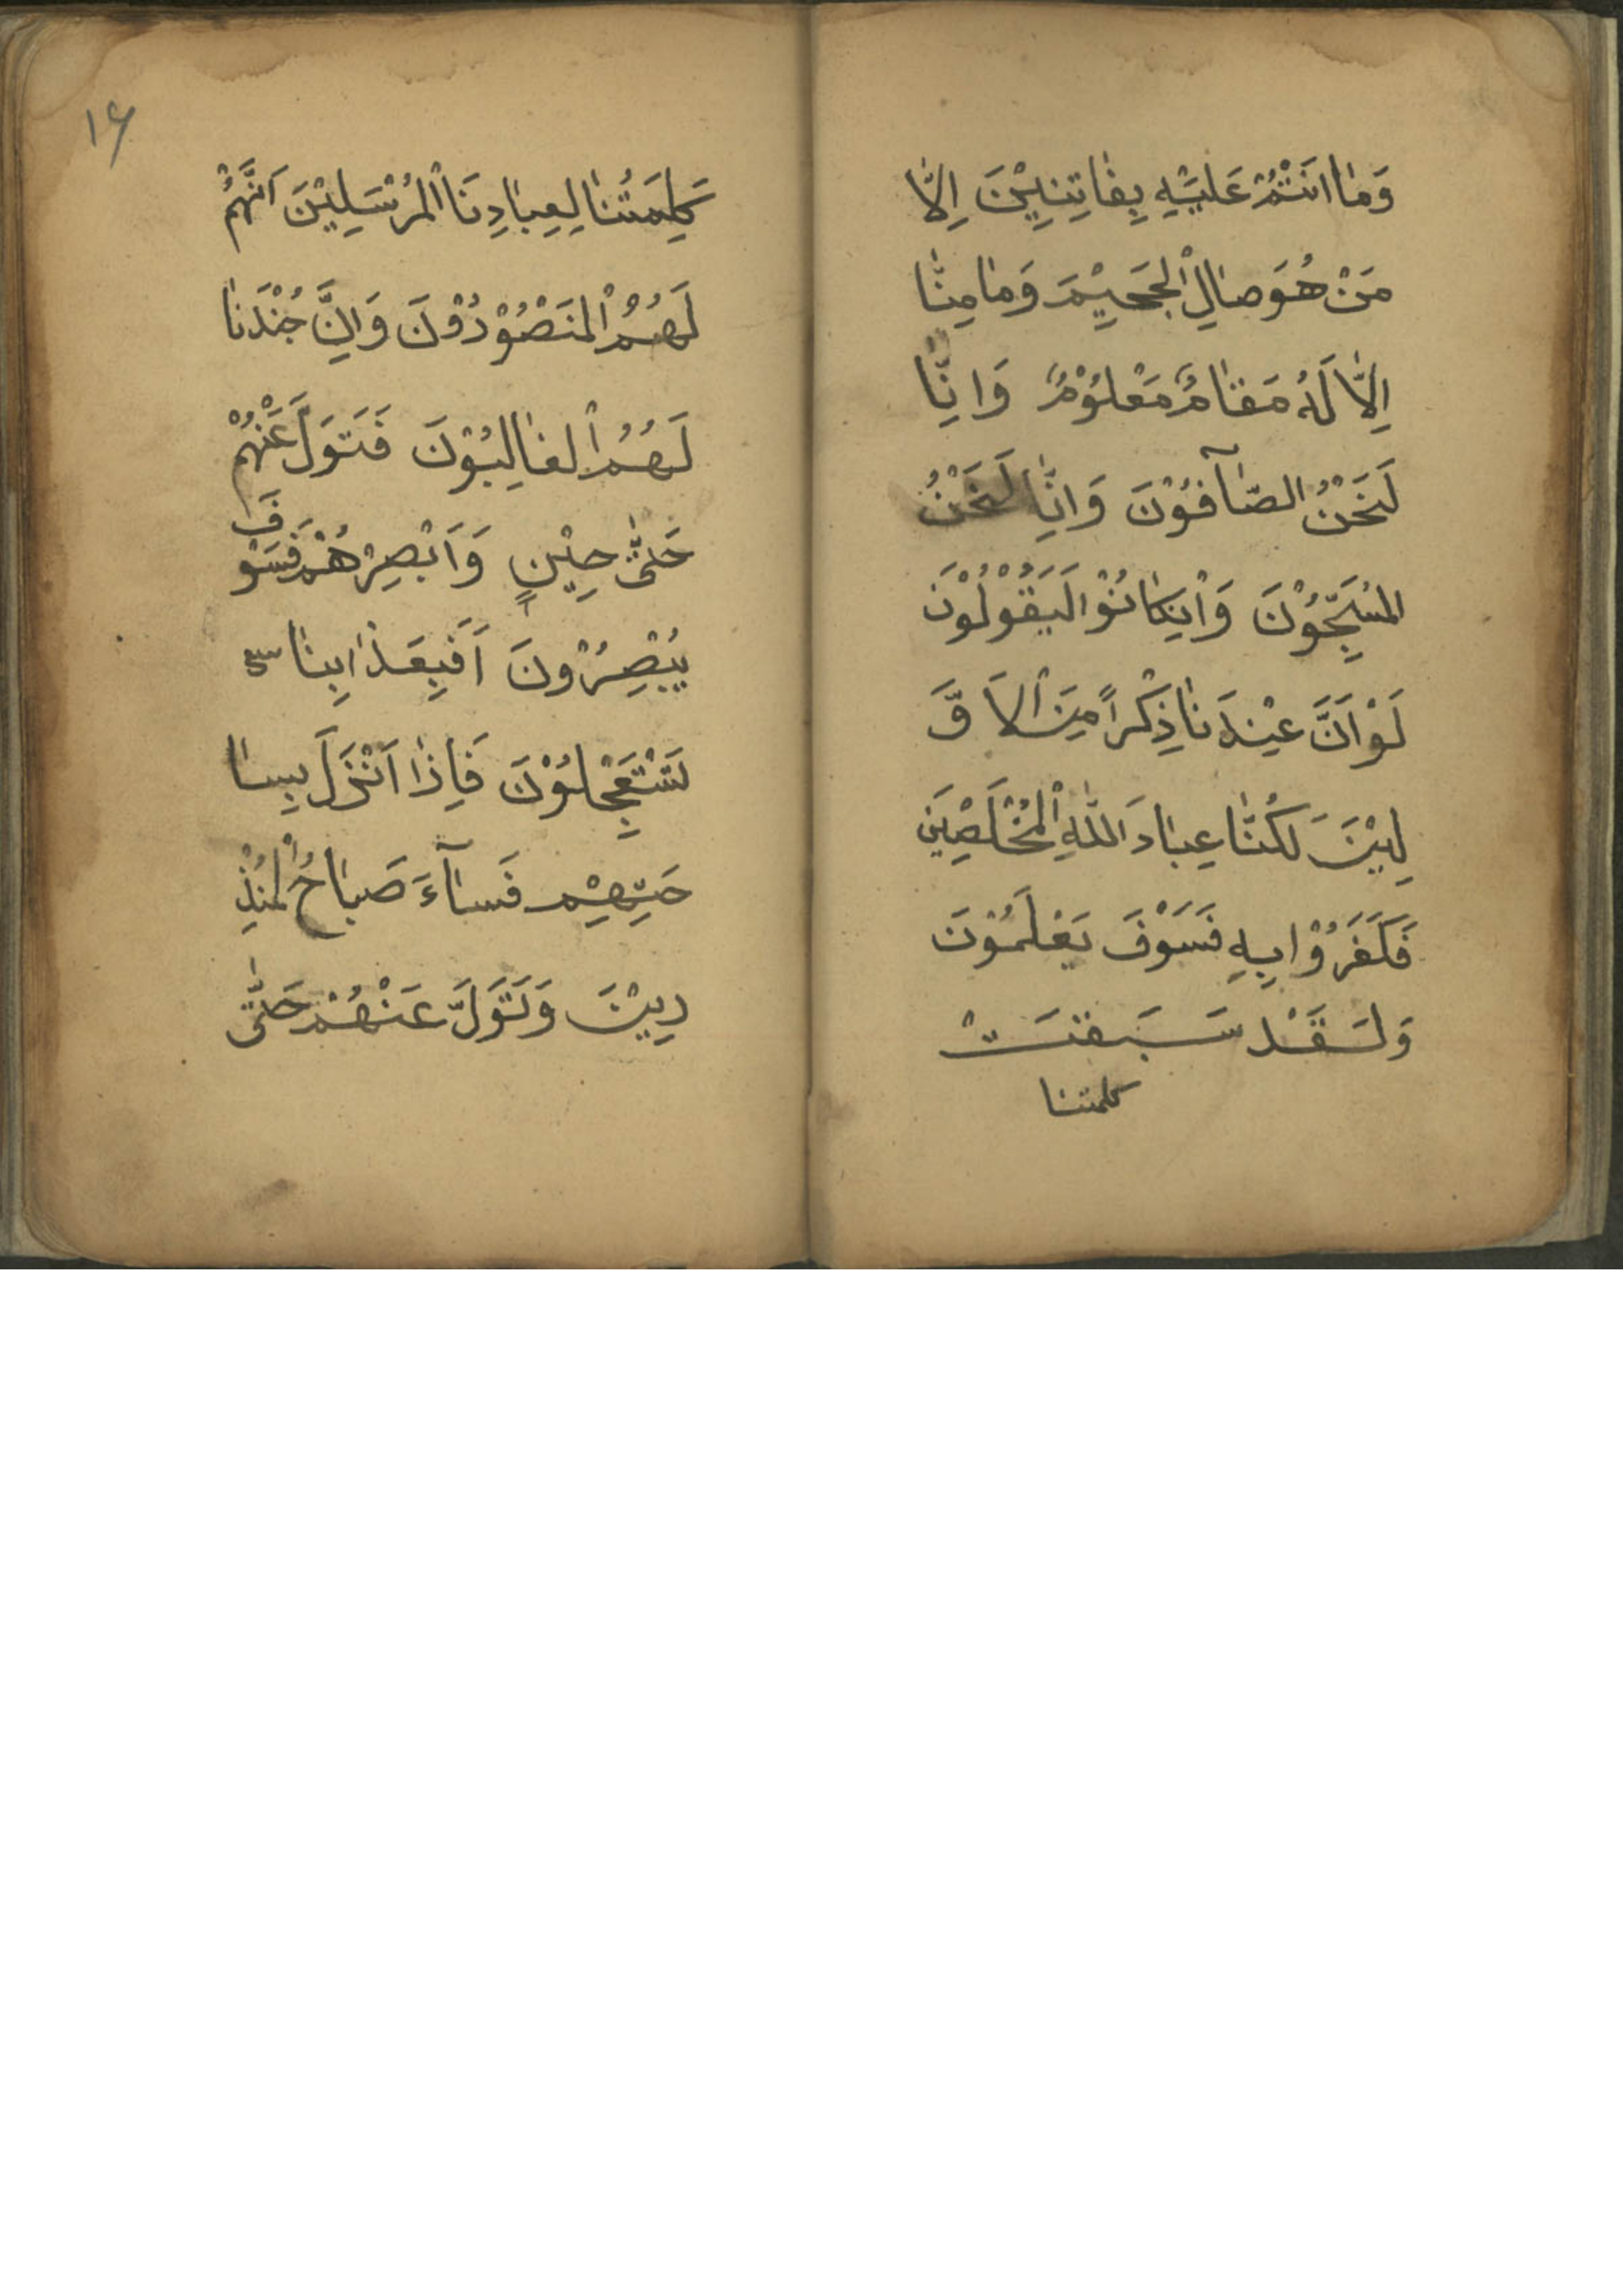 وَمٰا اَنْتُمْ عَلَيْهِ بِفٰاتِنِيْنَ اِلّٰا
مَنْ هُوَ صٰالِ الْجَحِيْمَ وَمٰا مِنّٰا
اِلّٰا لَهُ مَقٰامٌ مَعْلُوْمٌ وَاِنّٰا
لَنَحْنُ الصّٰآفُوْنَ وَاِنّٰا لَنَحْنُ
المُسَبِّحُوْنَ وَاْنِكٰانُوْا لَيَقُوْلُوْنَ
لَوْ اَنَّ عِنْدَنٰا ذِكْراً مِنَ الْاَوَّ
لِيْنَ لَكُنّٰا عِبٰادَ اللّٰهِ الْمُخْلَصِيَن
فَكَفَرُوْا بِهِ فَسَوْفَ يَعْلَمُوْنَ
وَلَقَدْ سَبَقَتْ
كلمتنا
۱۶
كَلِمَتُنٰا لِعِبٰادِنَا الْمُرْسَلِيْنَ اَنَّهُمْ
لَهُمُ الْمَنْصُوْرُوْنَ وَاِنَّ جُنْدَنٰا
لَهُمُ الْغٰالِبُوْنَ فَتَوَلَّ عَنْهُمْ
حَتّٰى حِيْنٍ وَاَبْصِرْهُمْ فَسَوْفَ
يُبْصِرُوْنَ اَفَبِعَذٰابِنٰا
يَسْتَعْجِلُوْنَ فَاِذٰا اَنْزَلَ بِسٰا
حَتِهِيْم فَسٰآءَ صَبٰاحُ الْمُنْذِ
رِيْنَ وَتَوَلَّ عَنْهُمْ حَتّٰى